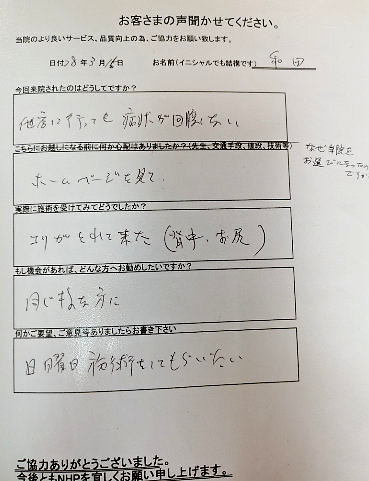 お客さまの声聞かせてください。
当院のより良いサービス、品質向上の為、ご協力をお願い致します。
日付 28年3月16日 お名前(イニシャルでも結構です) 和田
今回来院されたのはどうしてですか?
他店に行っても症状が回復しない
こちらにお越しになる前に何か心配はありましたか?(先生、交通手段、値段、技術等)
なぜ当院を
お選びになったの
ですか
ホームページを見て
実際に施術を受けてみてどうでしたか?
コリがとれて来た(背中、お尻)
もし機会があれば、どんな方へお勧めしたいですか?
同じ様な方に
何かご要望、ご意見等ありましたらお書き下さい
日曜日施術をしてもらいたい
ご協力ありがとうございました。
今後ともNHPを宜しくお願い申し上げます。